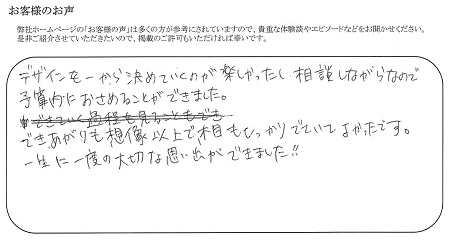 お客様のお声
弊社ホームページの「お客様の声」は多くの方が参考にされていますので、貴重な体験談やエピソードなどをお聞かせください。
是非ご紹介させていただきたいので、掲載のご許可もいただければ幸いです。
デザインを一から決めていくのが楽しかったし相談しながらなので
予算内におさめることができました。
できていく過程も見ることもでき
できあがりも想像以上で木目もしっかりでていてよかったです。
一生に一度の大切な思い出ができました!!